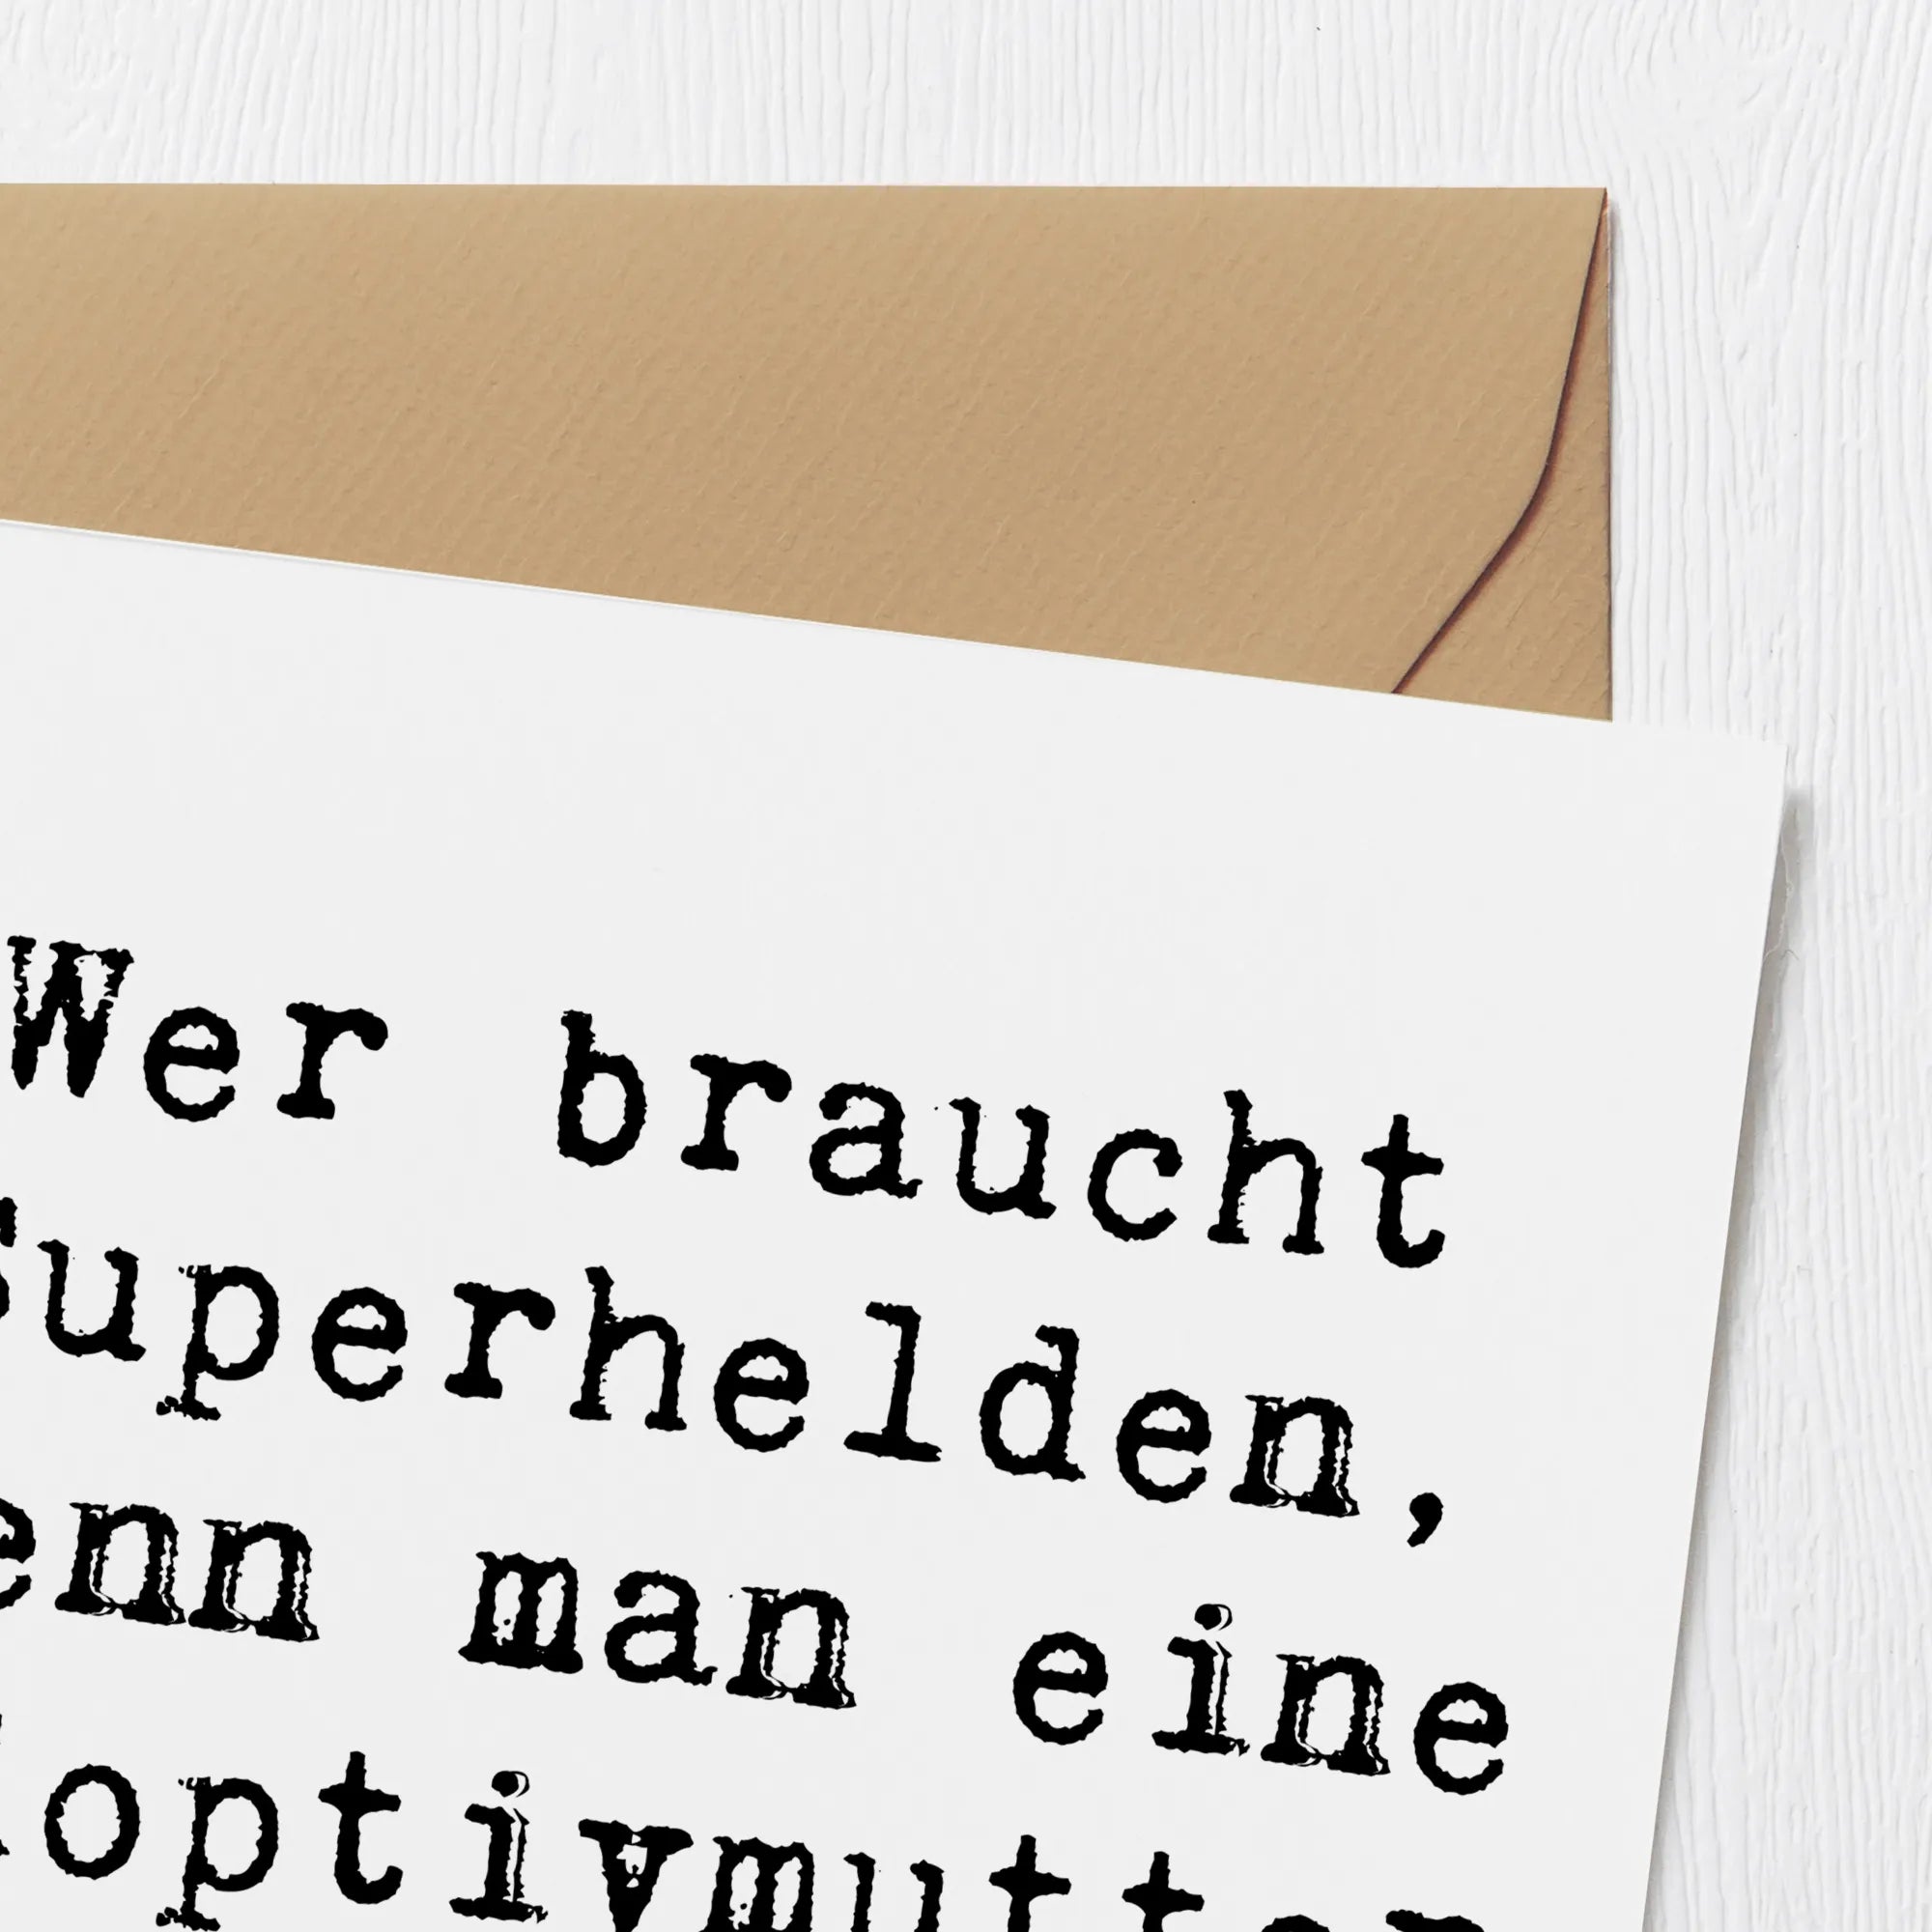 Wer braucht
Superhelden,
wenn man eine
Adoptivmutter